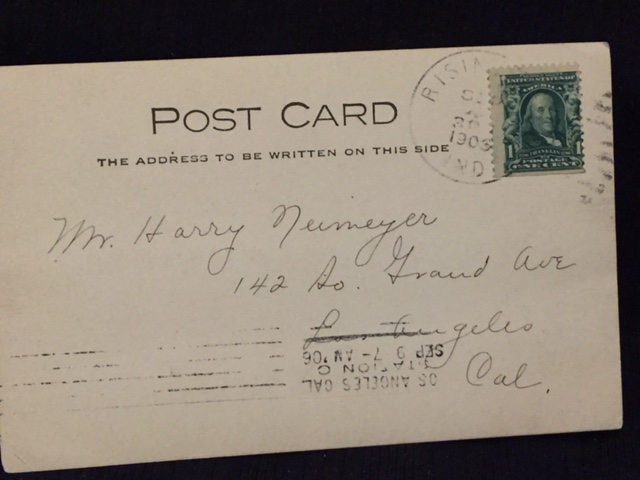 POST CARD
THE ADDRESS TO BE WRITTEN ON THIS SIDE
1906
IND
UNITED STATES OF
AMERICA
1 1
POSTAGE
ONE CENT
Mr. Harry Neimeyer
142 So. Grand Ave
Los Angeles
Cal.
OS ANGELES CAL
STATION C
SEP 9 7-AM '06